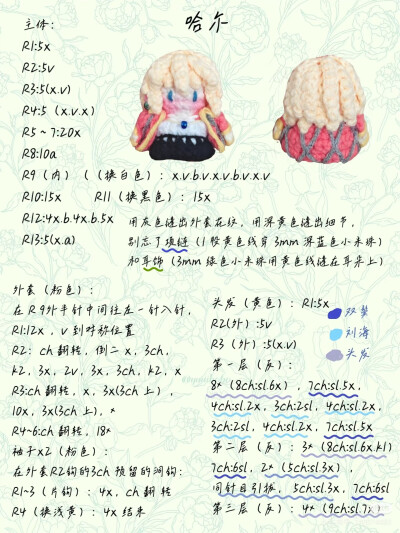 哈尔
主体：
R1:5x
R2:5v
R3:5(x.v)
R4:5（x.v.x）
R5~7:20x
R8:10a
R9（内）（（换白色）：x.v.b.v.x.v.b.v.x.v
R10:15x R11（换黑色）：15x
R12:4x.b.4x.b.5x
R13:5(x.a)
用灰色缝出外套花纹，用深黄色缝出细节，
别忘了项链（1股黄色线穿3mm深蓝色小米珠）
和耳饰（3mm绿色小米珠用黄色线缝在耳朵上）
外套（粉色）：
在R9外半针中间往左一针入针，
R1:12x，v到对称位置
R2：ch翻转，倒二x，3ch，
k2，3x，2v，3x，3ch，k2，x
R3:ch翻转，x，3x(3ch上），
10x，3x(3ch上)，x
R4~6:ch翻转，18x
袖子x2（粉色）：
在外套R2钩的3ch预留的洞钩：
R1~3（片钩）：4x，ch翻转
R4（换浅黄）：4x结束
头发（黄色）：R1:5x
R2(外）:5v
R3（外）:5(x.v)
双鬓
刘海
头发
第一层（灰）：
8*（8ch:sl.6x），7ch:sl.5x，
4ch:sl.2x，3ch:2sl，4ch:sl.2x，
3ch:2sl，4ch:sl.2x，7ch:sl.5x
第二层（灰）：3*（8ch:sl.6x.k1)
7ch:6sl，2*（5ch:sl.3x），
同针目引拔，5ch:sl.3x，7ch:6sl
第三层（灰）：4*（9ch:sl.7x）